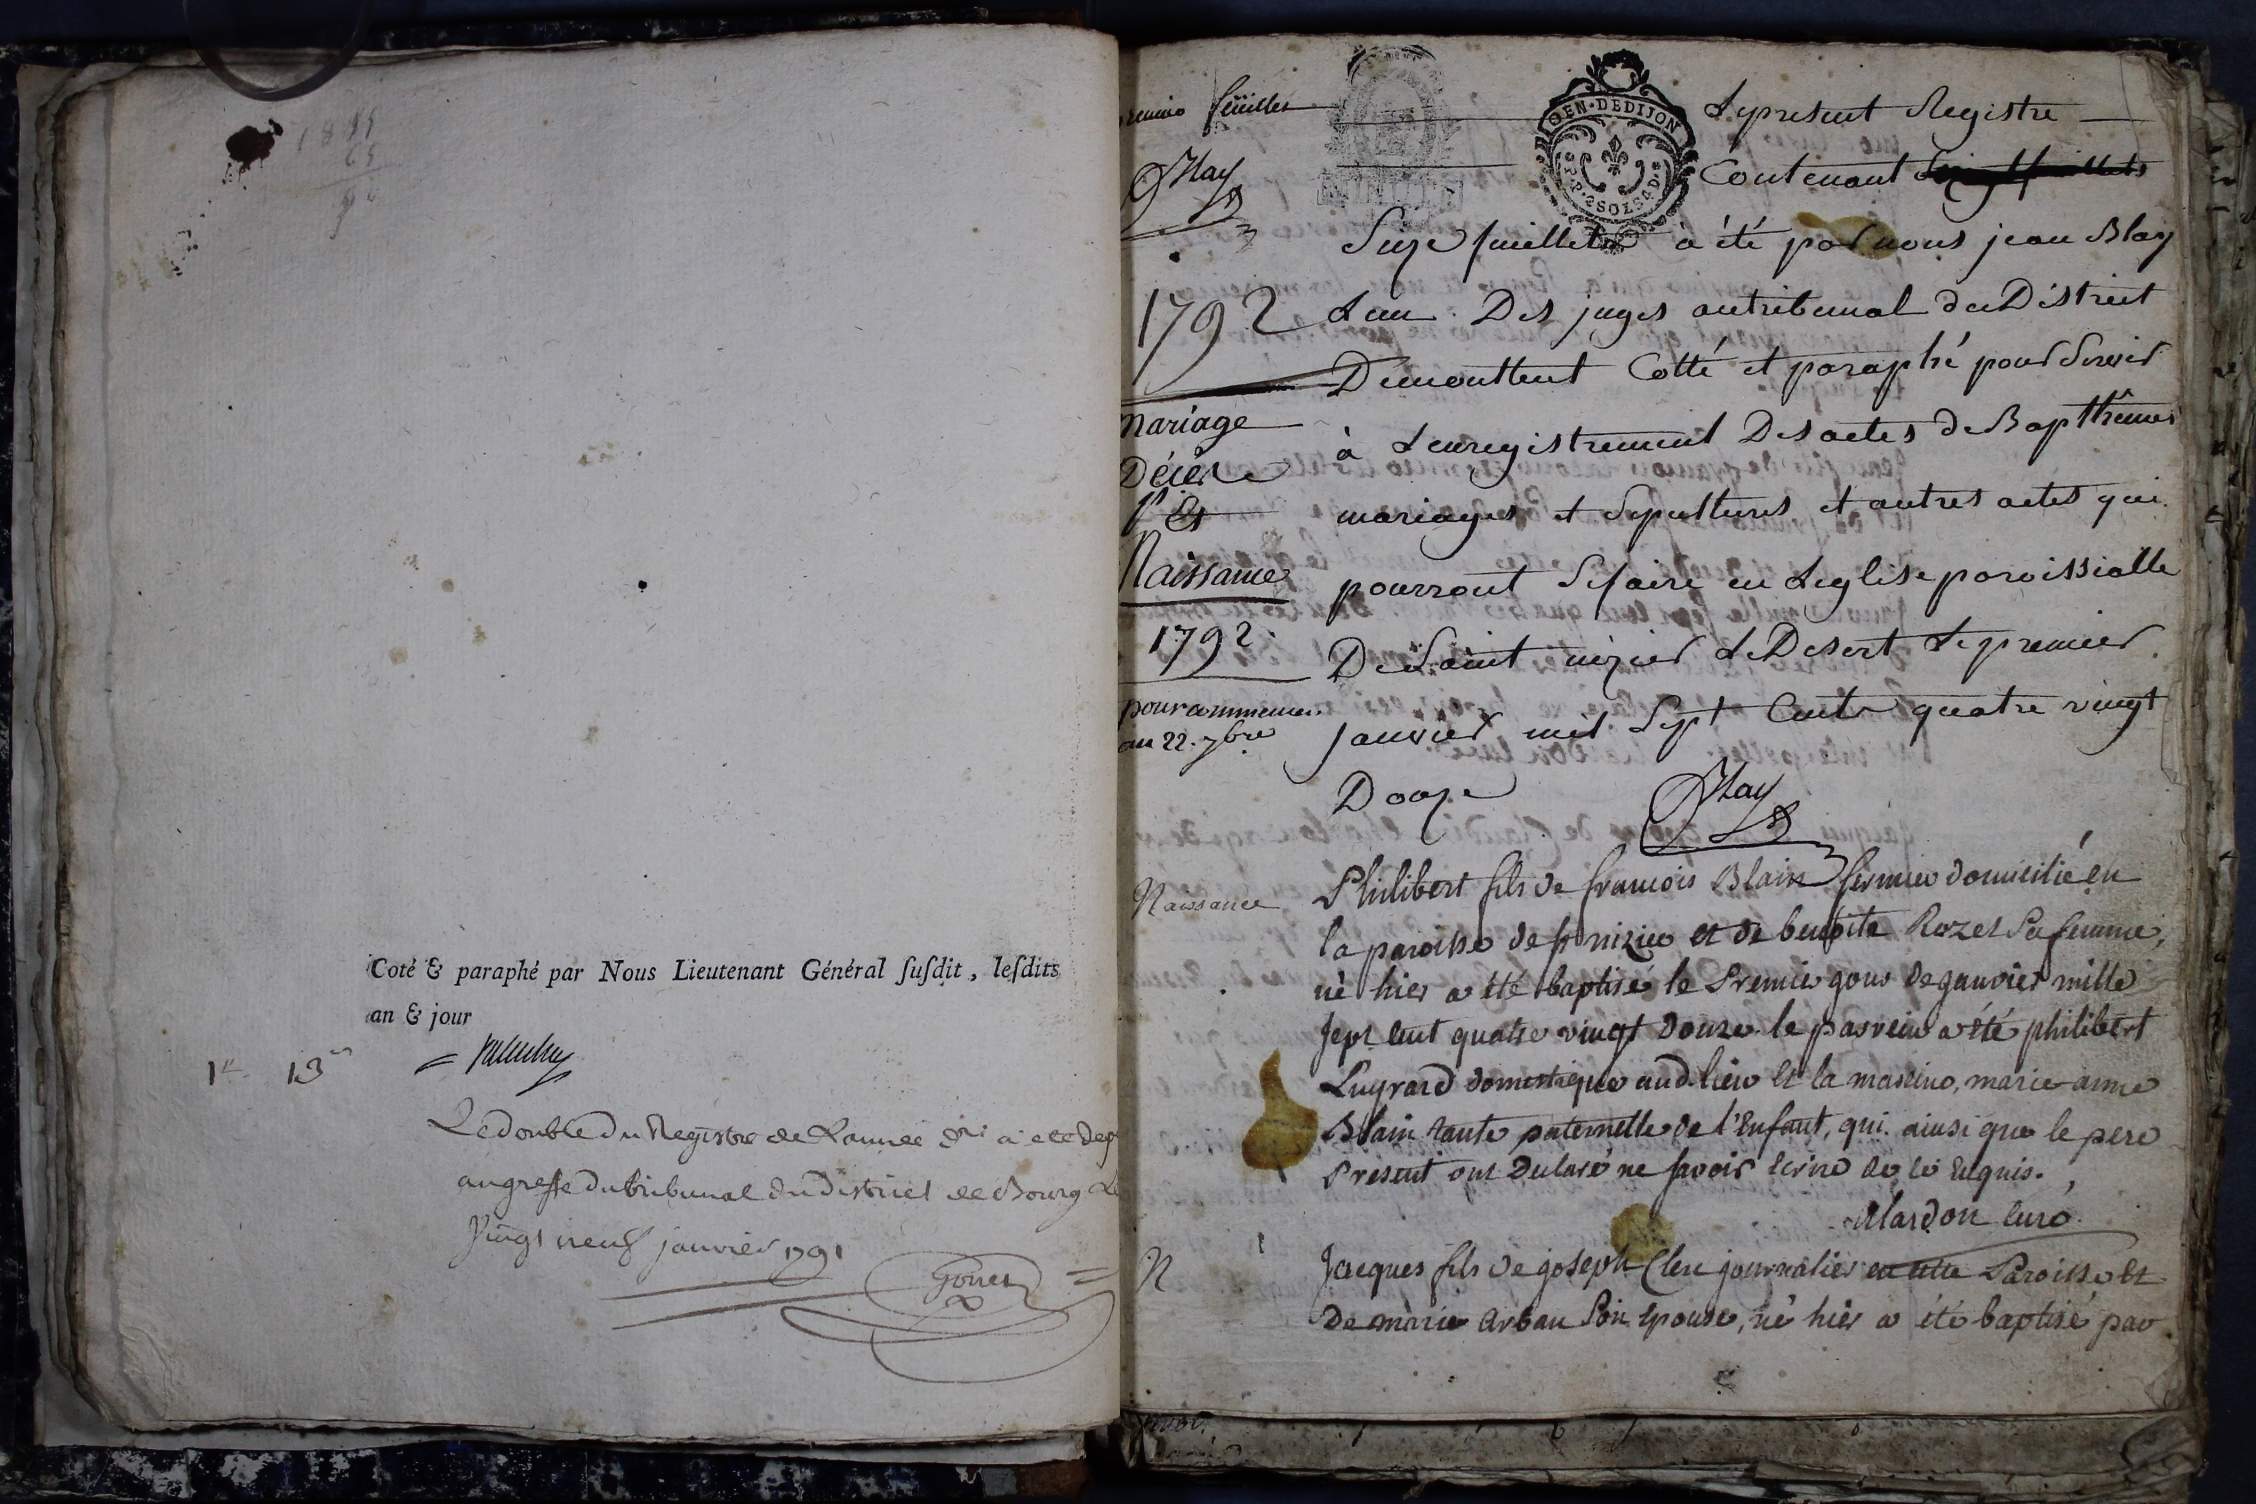 Coté & paraphé par Nous Lieutenant Général ſuſdit, leſdits
an & jour
Le double du Registre de L'année dre a ete dep
au greffe du tribunal du District de Bourg Le
Vingt neuf janvier 1791
Gouet
premier feuillet
Blay
1792
Mariage
Décès
Et
Naissance
1792
pour commencer
au 22. 7bre
GEN·DEDIJON
Le present Registre
Contenant
Seize feuillets à été par nous jean Blay
L'un Des juges au tribunal du District
De montluel Cotté et paraphé pour Servir
à L'enregistrement Des actes de Bapthêmes
mariages et Sepultures et autres actes qui
pourront Se faire en L'eglise paroissialle
De Saint nizier Le Desert Le premier
janvier mil Sept Cents quatre vingt
Douze
Blay
Naissance
Philibert fils de francois Blain fermier domicilié en
la paroisse de st nizier et de benoite Rozet Sa femme,
né hier a été baptisé le Premier jour de janvier mille
sept cent quatre vingt douze. le parrein a été philibert
Luyrard domestique aud. lieu et la mareine, marie anne
Blain tante paternelle de l'Enfant, qui ainsi que le pere
Present ont Declaré ne savoir écrire de ce Enquis.
Mardon Curé
N
Jacques fils de joseph Clerc journalier en cette Paroisse et
de marie Arban Son épouse, né hier a été baptisé par